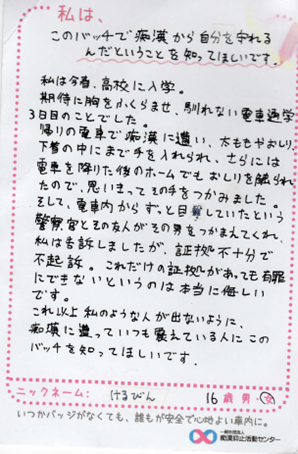 私は、
このバッチで痴漢から自分を守れる
んだということを知ってほしいです。
私は今春、高校に入学。
期待に胸をふくらませ、馴れない電車通学
3日目のことでした。
帰りの電車で痴漢に遭い、太ももやおしり、
下着の中にまで手を入れられ、さらには
電車を降りた後のホームでもおしりを触られ
たので、思いきってその手をつかみました。
そして、電車内からずっと目撃していたという
警察官とその友人がその男をつかまえてくれ、
私は告訴しましたが、証拠不十分で
不起訴。これだけの証拠があっても有罪
にできないというのは本当に悔しい
です。
これ以上私のような人が出ないように、
痴漢に遭っていつも震えている人にこの
バッチを知ってほしいです。
ニックネーム: けるびん 16歳 男・女
いつかバッジがなくても、誰もが安全で心地よい車内に。
一般社団法人
痴漢抑止活動センター